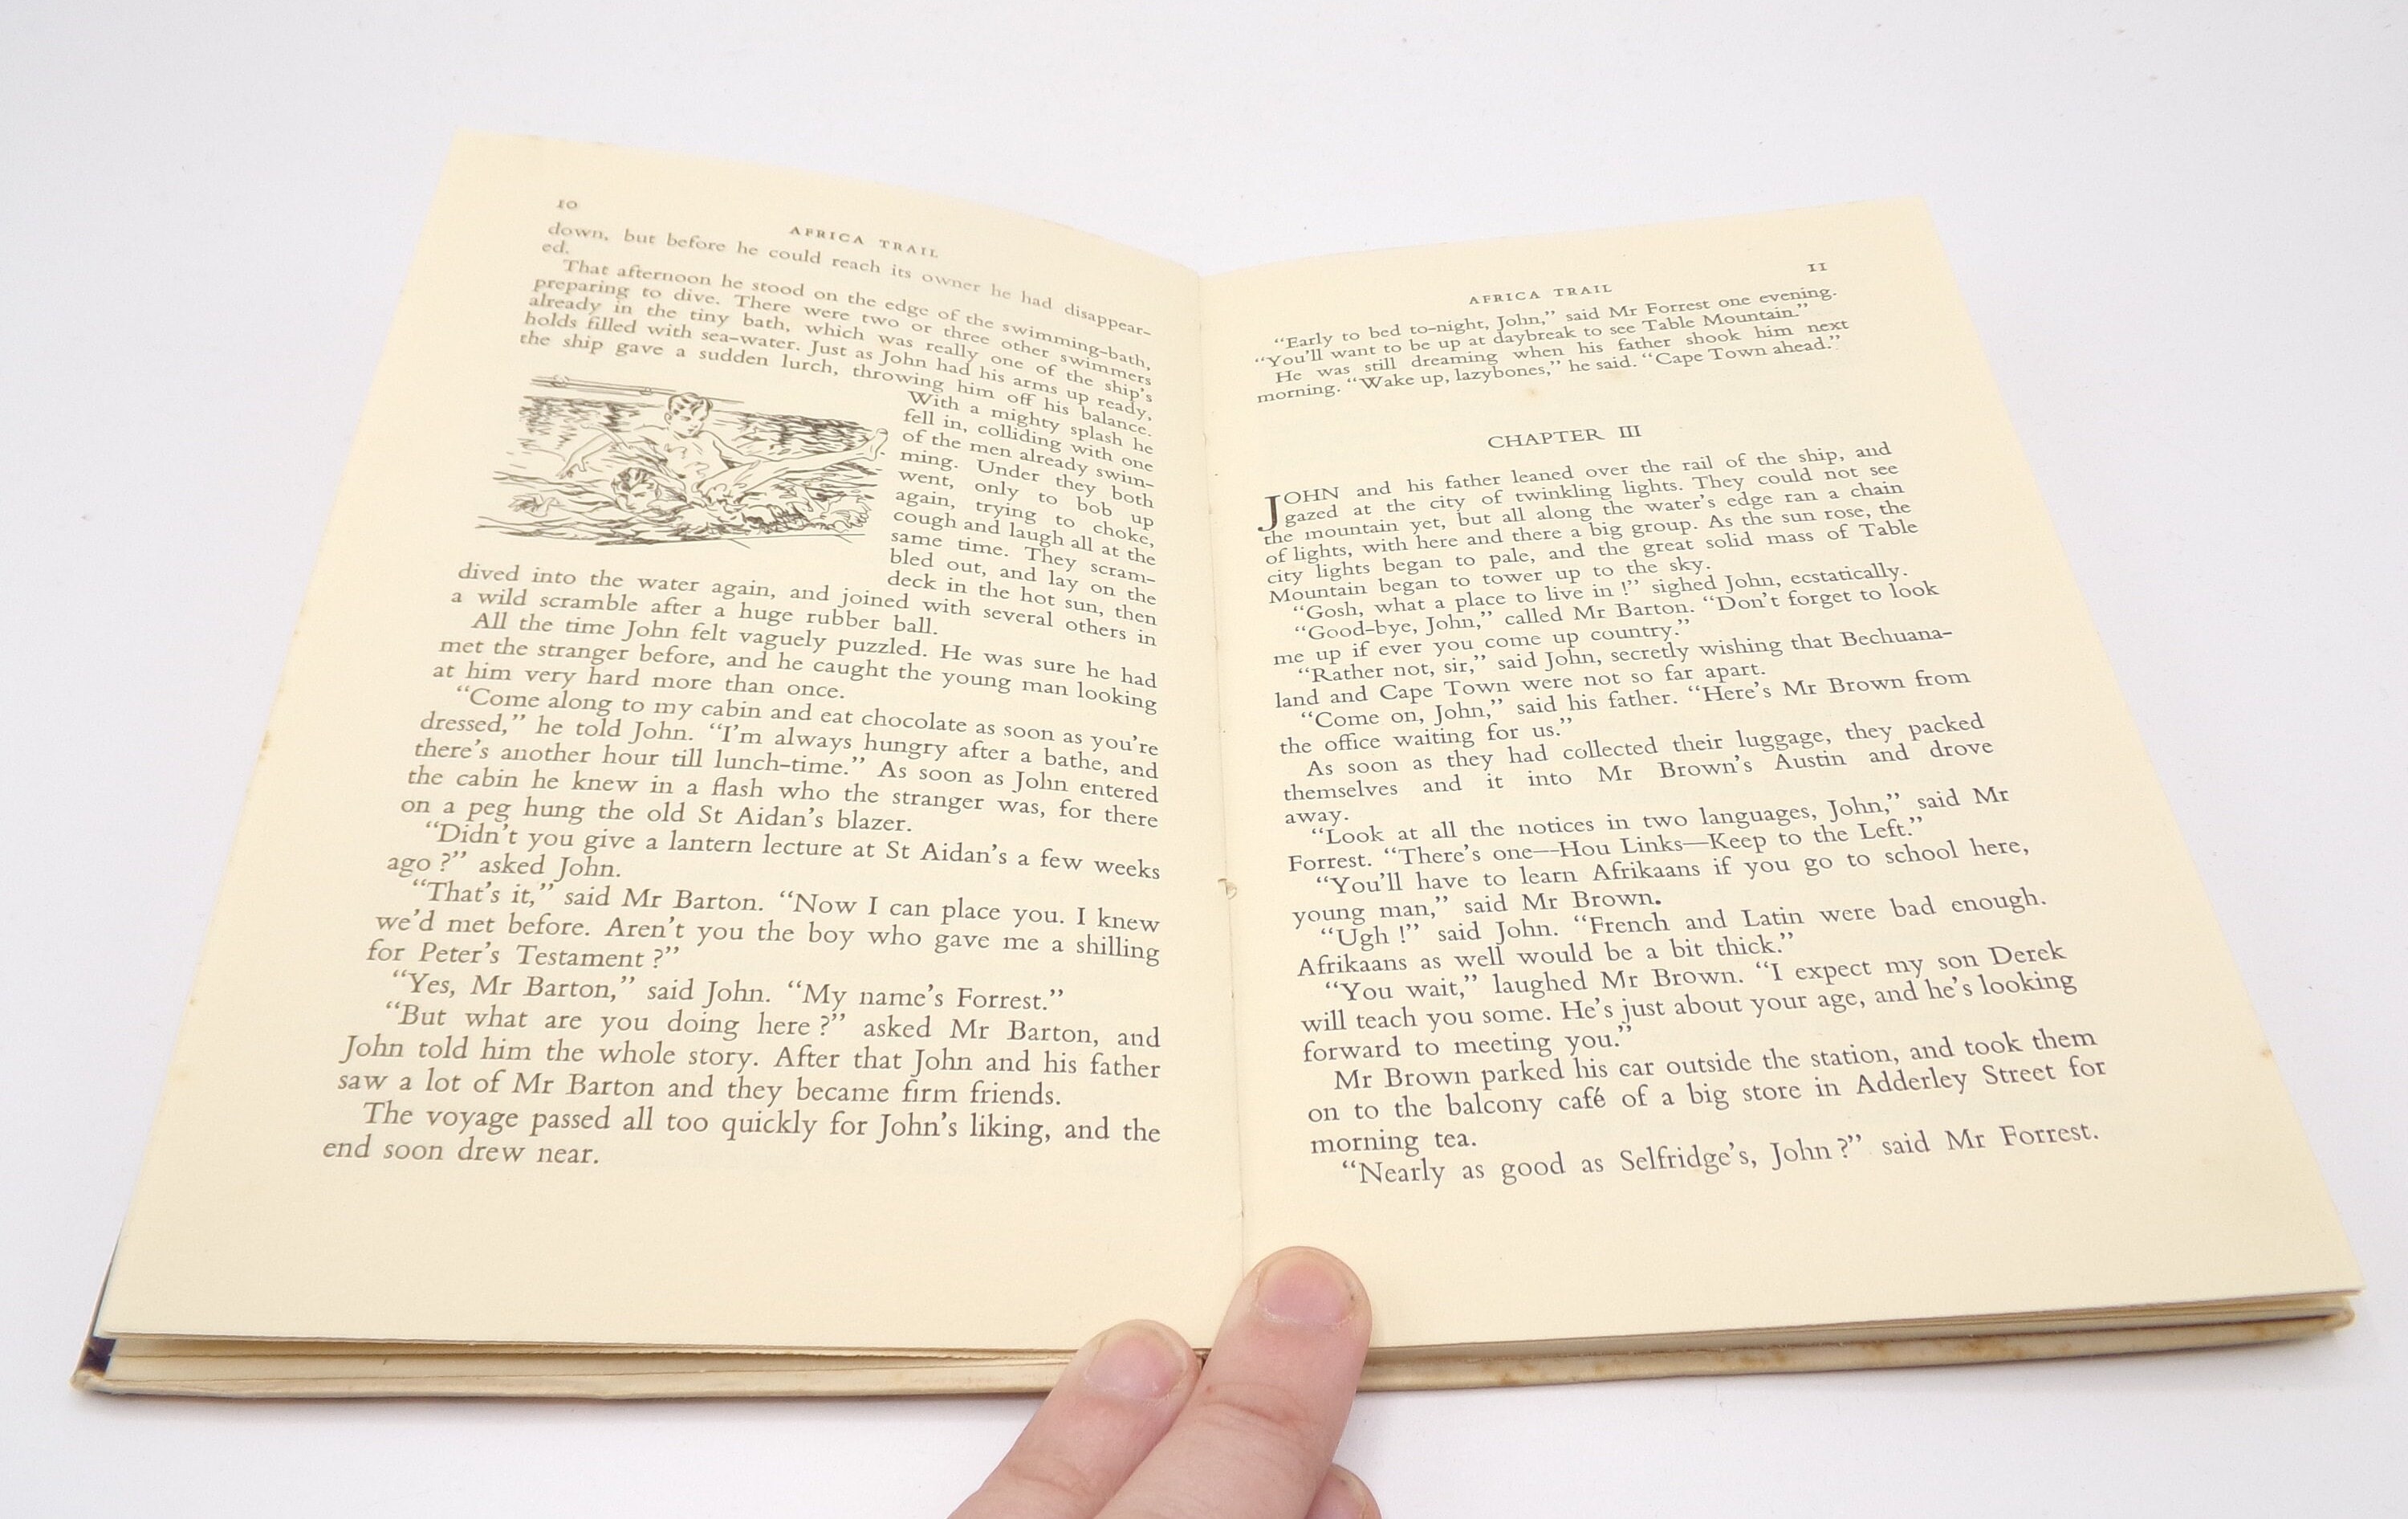 10
AFRICA TRAIL
down, but before he could reach its owner he had disappear-
ed.
That afternoon he stood on the edge of the swimming-bath,
preparing to dive. There were two or three other swimmers
already in the tiny bath, which was really one of the ship's
holds filled with sea-water. Just as John had his arms up ready,
the ship gave a sudden lurch, throwing him off his balance.
With a mighty splash he
fell in, colliding with one
of the men already swim-
ming. Under they both
went, only to bob up
again, trying to choke,
cough and laugh all at the
same time. They scram-
bled out, and lay on the
deck in the hot sun, then
dived into the water again, and joined with several others in
a wild scramble after a huge rubber ball.
All the time John felt vaguely puzzled. He was sure he had
met the stranger before, and he caught the young man looking
at him very hard more than once.
“Come along to my cabin and eat chocolate as soon as you're
dressed,” he told John. “I'm always hungry after a bathe, and
there's another hour till lunch-time.” As soon as John entered
the cabin he knew in a flash who the stranger was, for there
on a peg hung the old St Aidan's blazer.
“Didn't you give a lantern lecture at St Aidan's a few weeks
ago?” asked John.
“That's it,” said Mr Barton. “Now I can place you. I knew
we'd met before. Aren't you the boy who gave me a shilling
for Peter's Testament?”
“Yes, Mr Barton,” said John. “My name's Forrest.”
“But what are you doing here?” asked Mr Barton, and
John told him the whole story. After that John and his father
saw a lot of Mr Barton and they became firm friends.
The voyage passed all too quickly for John's liking, and the
end soon drew near.
11
AFRICA TRAIL
“Early to bed to-night, John,” said Mr Forrest one evening.
“You'll want to be up at daybreak to see Table Mountain.”
He was still dreaming when his father shook him next
morning. “Wake up, lazybones,” he said. “Cape Town ahead.”
CHAPTER III
JOHN and his father leaned over the rail of the ship, and
gazed at the city of twinkling lights. They could not see
the mountain yet, but all along the water's edge ran a chain
of lights, with here and there a big group. As the sun rose, the
city lights began to pale, and the great solid mass of Table
Mountain began to tower up to the sky.
“Gosh, what a place to live in!” sighed John, ecstatically.
“Good-bye, John,” called Mr Barton. “Don't forget to look
me up if ever you come up country.”
“Rather not, sir,” said John, secretly wishing that Bechuana-
land and Cape Town were not so far apart.
“Come on, John,” said his father. “Here's Mr Brown from
the office waiting for us.”
As soon as they had collected their luggage, they packed
themselves and it into Mr Brown's Austin and drove
away.
“Look at all the notices in two languages, John,” said Mr
Forrest. “There's one—Hou Links—Keep to the Left.”
“You'll have to learn Afrikaans if you go to school here,
young man,” said Mr Brown.
“Ugh!” said John. “French and Latin were bad enough.
Afrikaans as well would be a bit thick.”
“You wait,” laughed Mr Brown. “I expect my son Derek
will teach you some. He's just about your age, and he's looking
forward to meeting you.”
Mr Brown parked his car outside the station, and took them
on to the balcony café of a big store in Adderley Street for
morning tea.
“Nearly as good as Selfridge's, John?” said Mr Forrest.